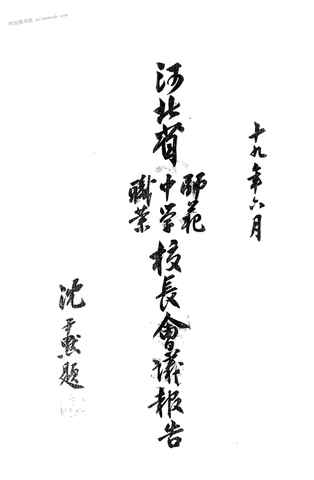 十九年六月
河北省
師範
中学
職業
校長會議報告
沈尹默題